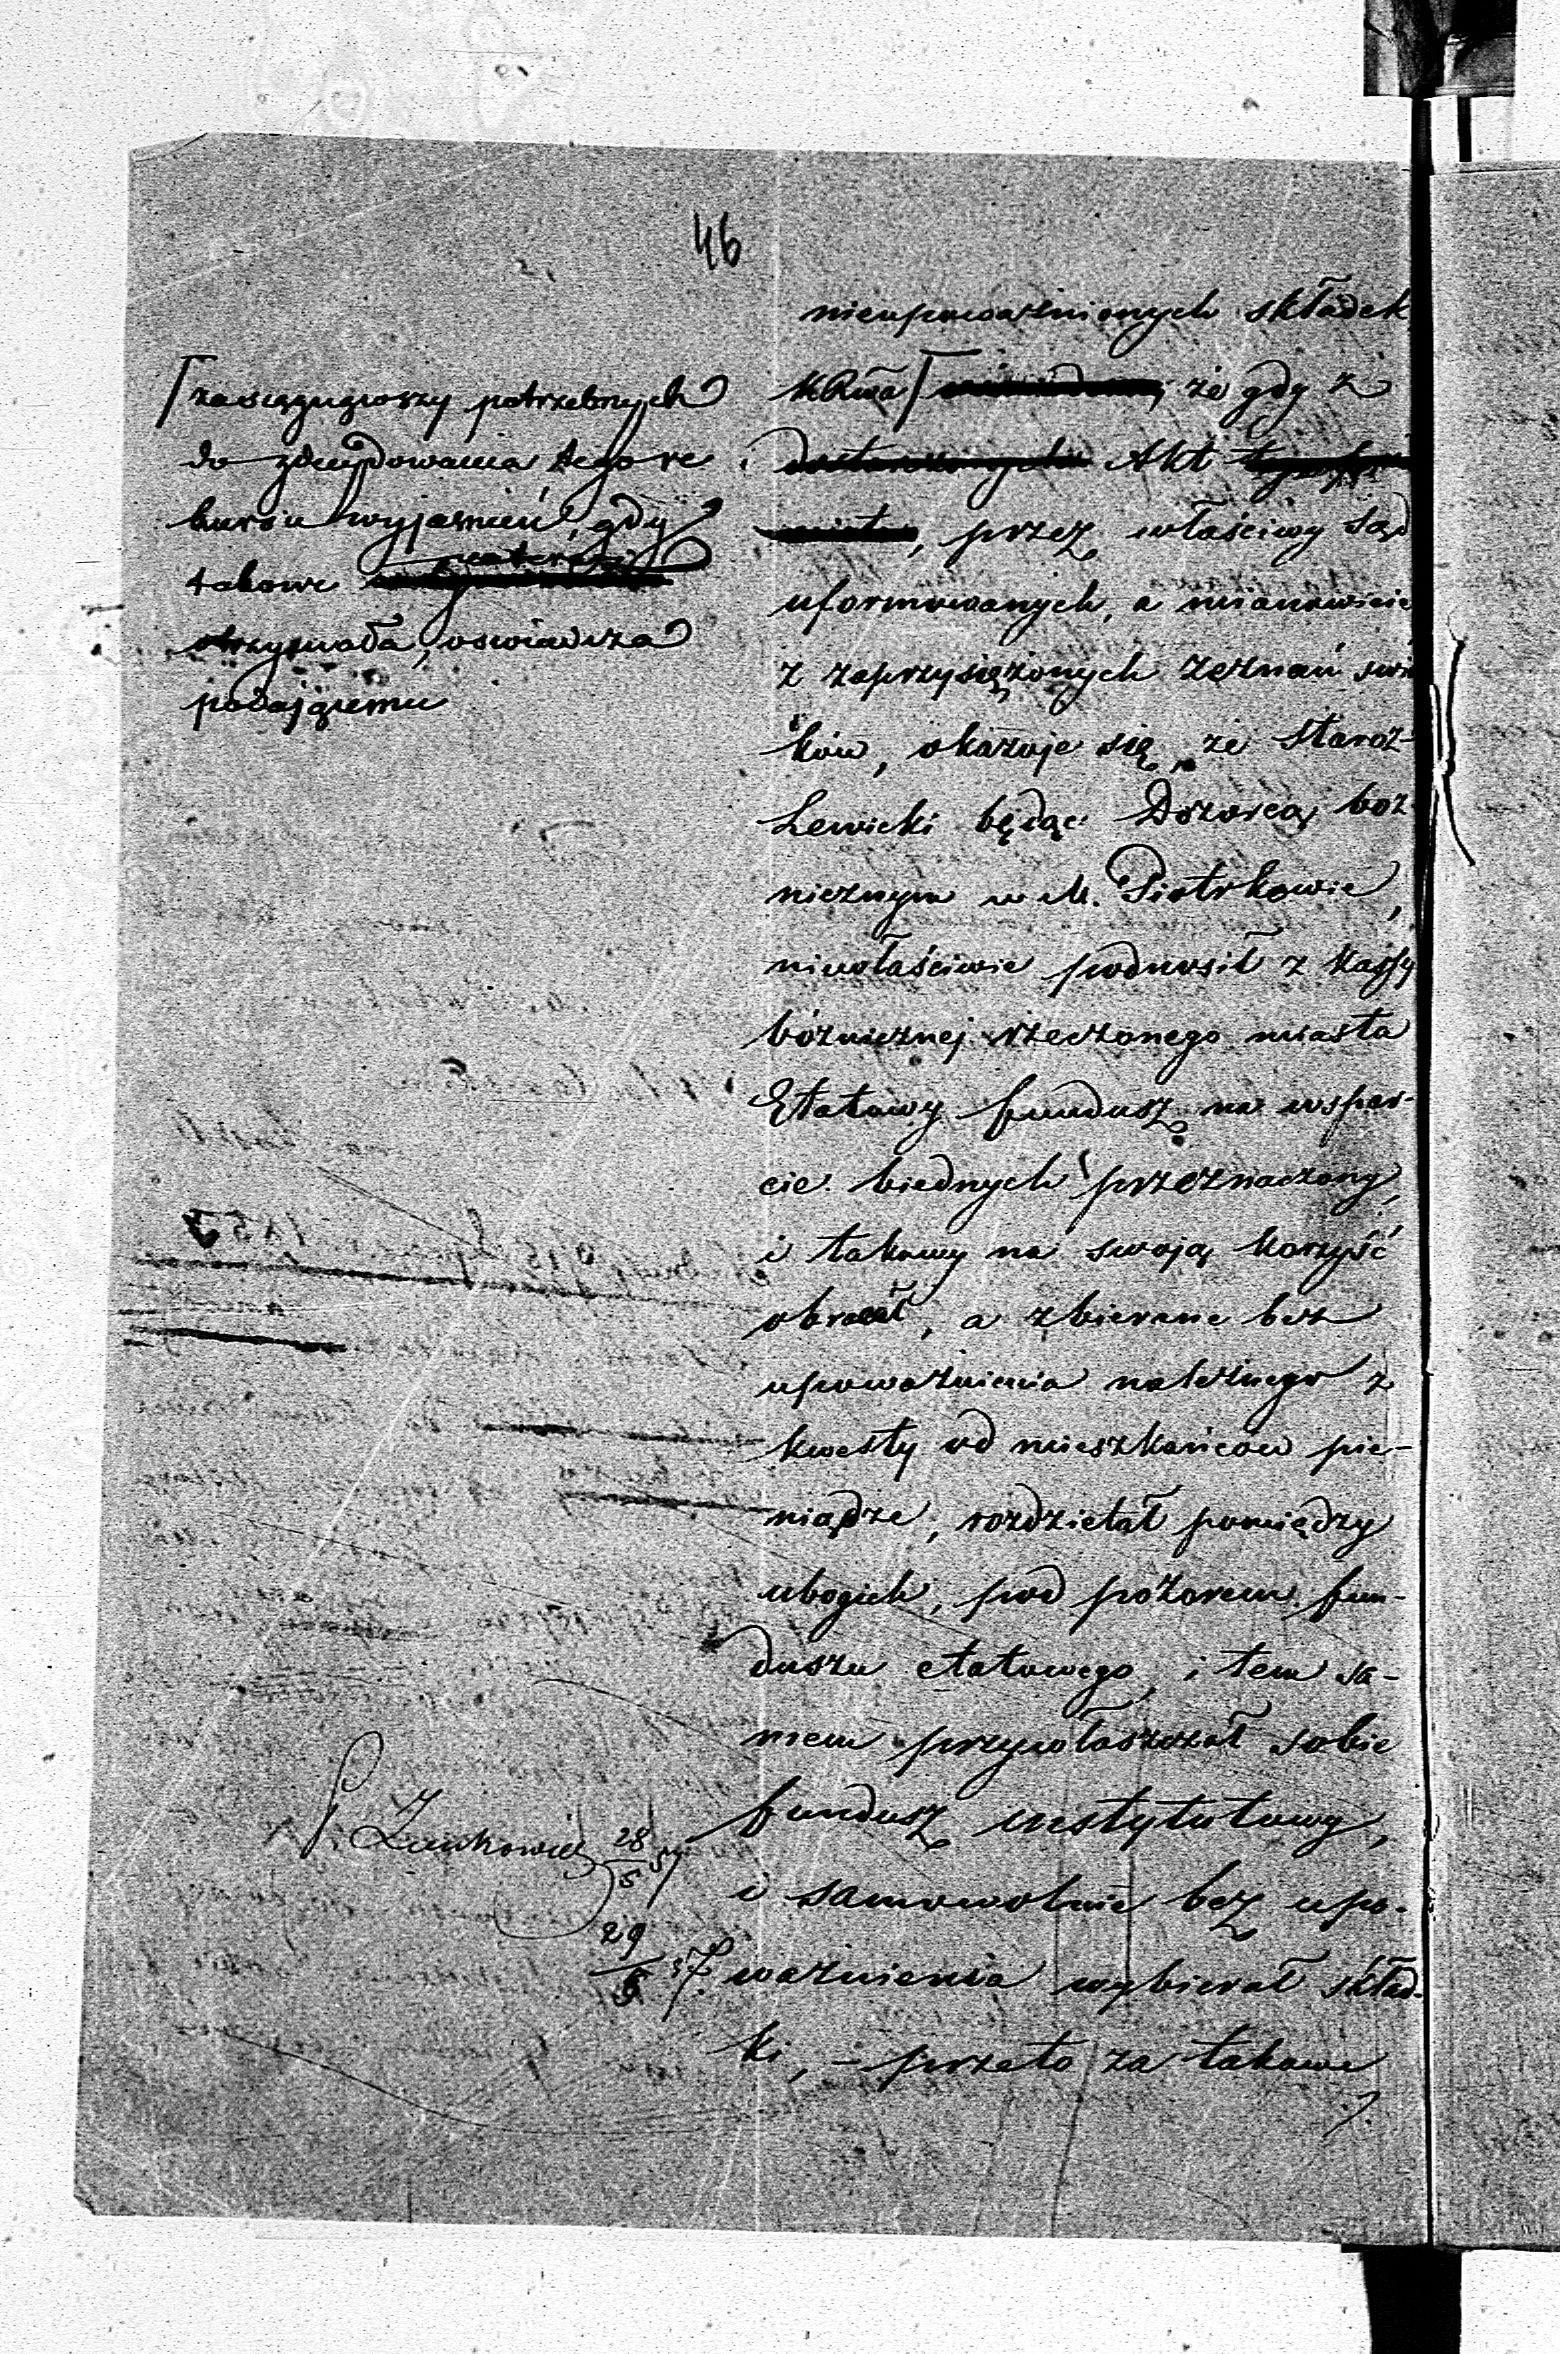 46
nieupoważnionych składek
KRSWa że gdy z
Akt
, przez właściwy Sąd
uformowanych, a mianowicie
z zaprzysiężonych zeznań świa
ków, okazuje się, że Staroz
Lewicki będąc Dozorcą boż
nicznym w M. Piotrkowie,
niewłaściwie podnosił z Kassy
bóżnicznej rzeczonego miasta
Etatowy fundusz na wspar-
cie biednych przeznaczony,
i takowy na swoją korzyść
obracał, a zbierane bez
upoważnienia należnego z
kwesty od mieszkańców pie-
niądze, rozdzielał pomiędzy
ubogich, pod pozorem fun-
duszu etatowego, i tem sa-
mem przywłaszczał sobie
fundusz instytutowy,
i samowolnie bez upo-
ważnienia wybierał skład-
ki, – przeto za takowe
./.
zasięgnąwszy potrzebnych
do zdecydowania tego re
kursu wyjaśnień, gdy
takowe
otrzymała, oswiadcza
podającemu
28/5 57
29/5 57.